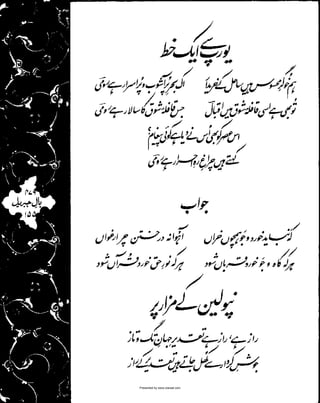 یورپ سے ایک خط
ہم خوگر محسوس ہیں ساحل کے خریدار
اک بحر پر آشوب و پر اسرار ہے رومی
تو بھی ہے اسی قافلۂ شوق میں اقبال
جس قافلۂ شوق کا سالار ہے رومی
اس عصر کو بھی اس نے دیا ہے کوئی پیغام؟
کہتے ہیں چراغ رہ احرار ہے رومی
جواب
کہ نباید خورد و جو ہمچوں خراں
آہوانہ در ختن چر ارغواں
ہر کہ کاہ و جو خورد قرباں شود
ہر کہ نور حق خورد قرآں شود
نپولین کے مزار پر
راز ہے، راز ہے تقدیر جہان تگ و تاز
جوش کردار سے کھل جاتے ہیں تقدیر کے راز
بال جبریل
۱۵۵